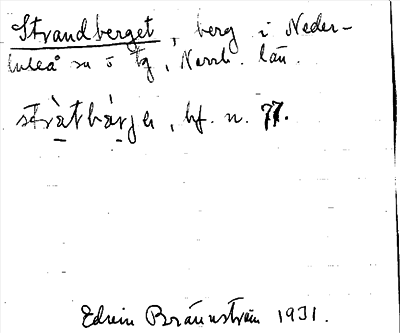 Strandberget, berg i Neder-
luleå sn ö tg, Norrb. län.
stràtbárje, hf. n. 77.
Edvin Brännström 1931.